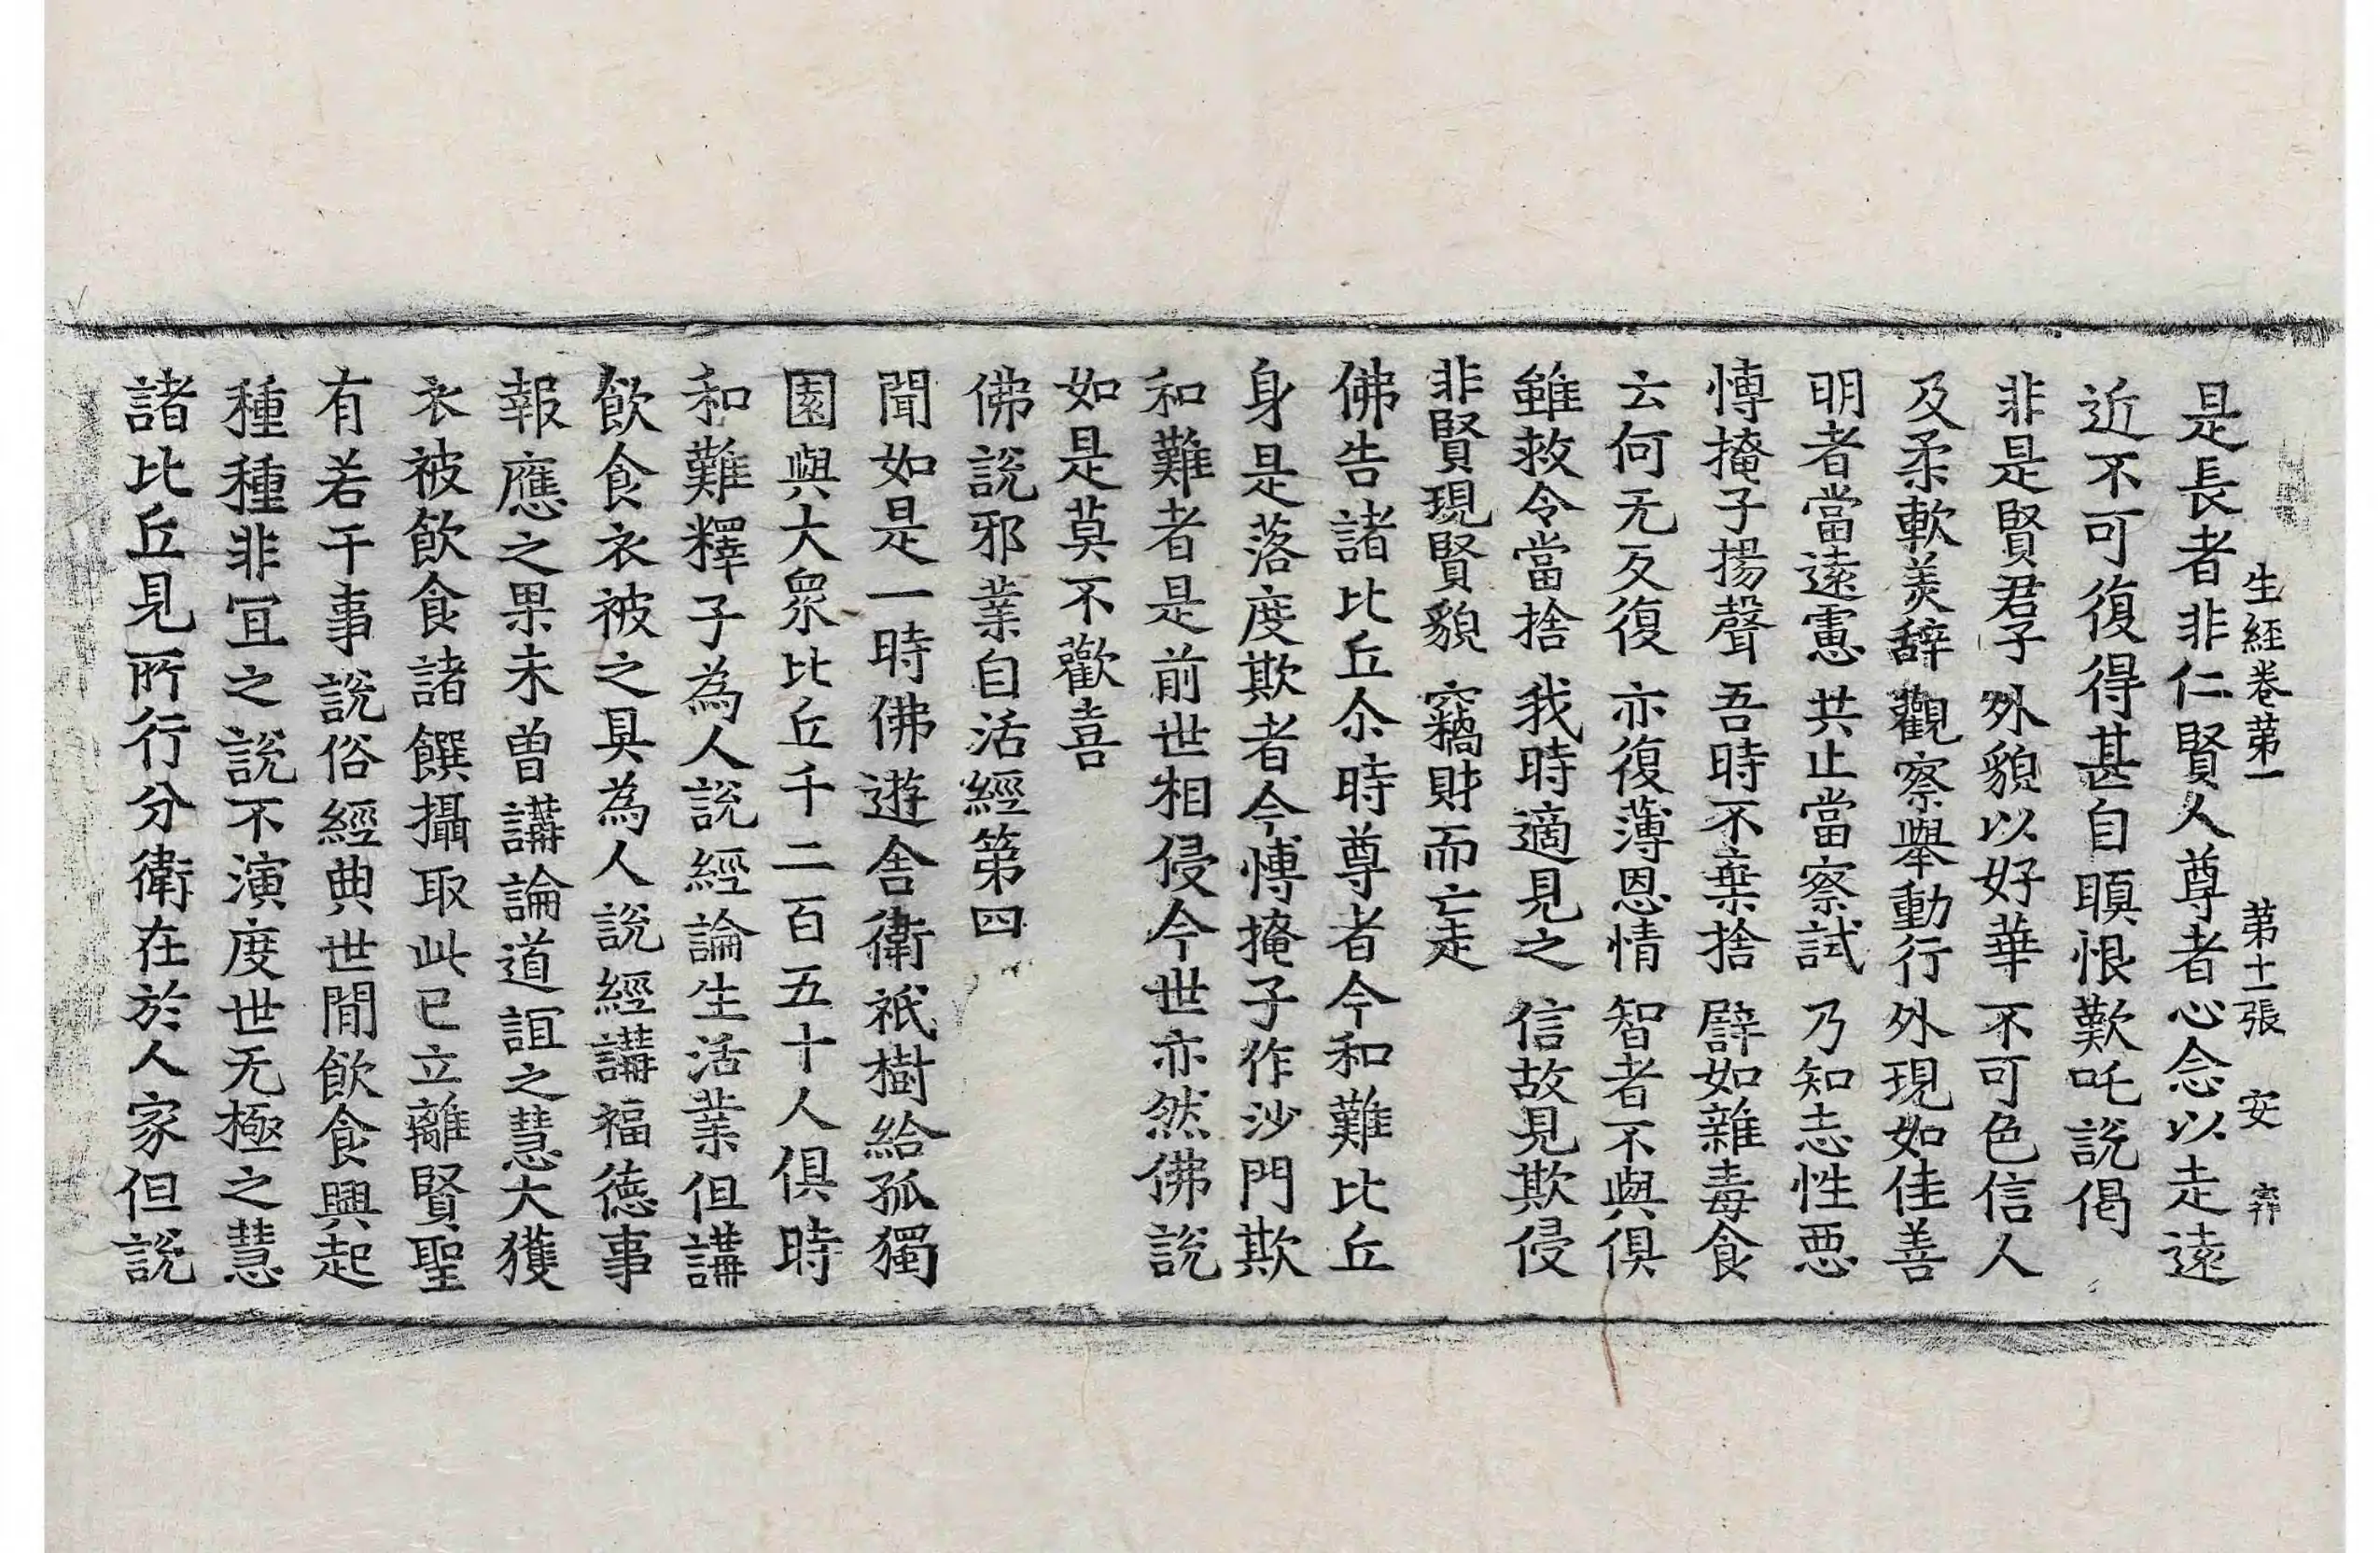 生經卷苐一 苐十二張 安
是長者非仁賢人尊者心念以走遠
近不可復得甚自瞋恨歎吒說偈
非是賢君子 外貌以好華 不可色信人
及柔軟美辝 觀察舉動行 外現如佳善
明者當遠慮 共止當察試 乃知志性惡
愽掩子揚聲 吾時不棄捨 譬如雜毒食
云何无反復 亦復薄恩情 智者不與俱
雖救令當捨 我時適見之 信故見欺侵
非賢現賢貌 竊財而亡走
佛告諸比丘尒時尊者今和難比丘
身是落度欺者今愽掩子作沙門欺
和難者是前世相侵今世亦然佛說
如是莫不歡喜
佛說邪業自活經第四
聞如是一時佛遊舍衛祇樹給孤獨
園與大衆比丘千二百五十人俱時
和難釋子為人說經論生活業但講
飲食衣被之具為人說經講福德事
報應之果未曾講論道誼之慧大獲
衣被飲食諸饌攝取此已立離賢聖
有若干事說俗經典世間飲食興起
種種非冝之說不演度世无極之慧
諸比丘見所行分衛在於人家但說